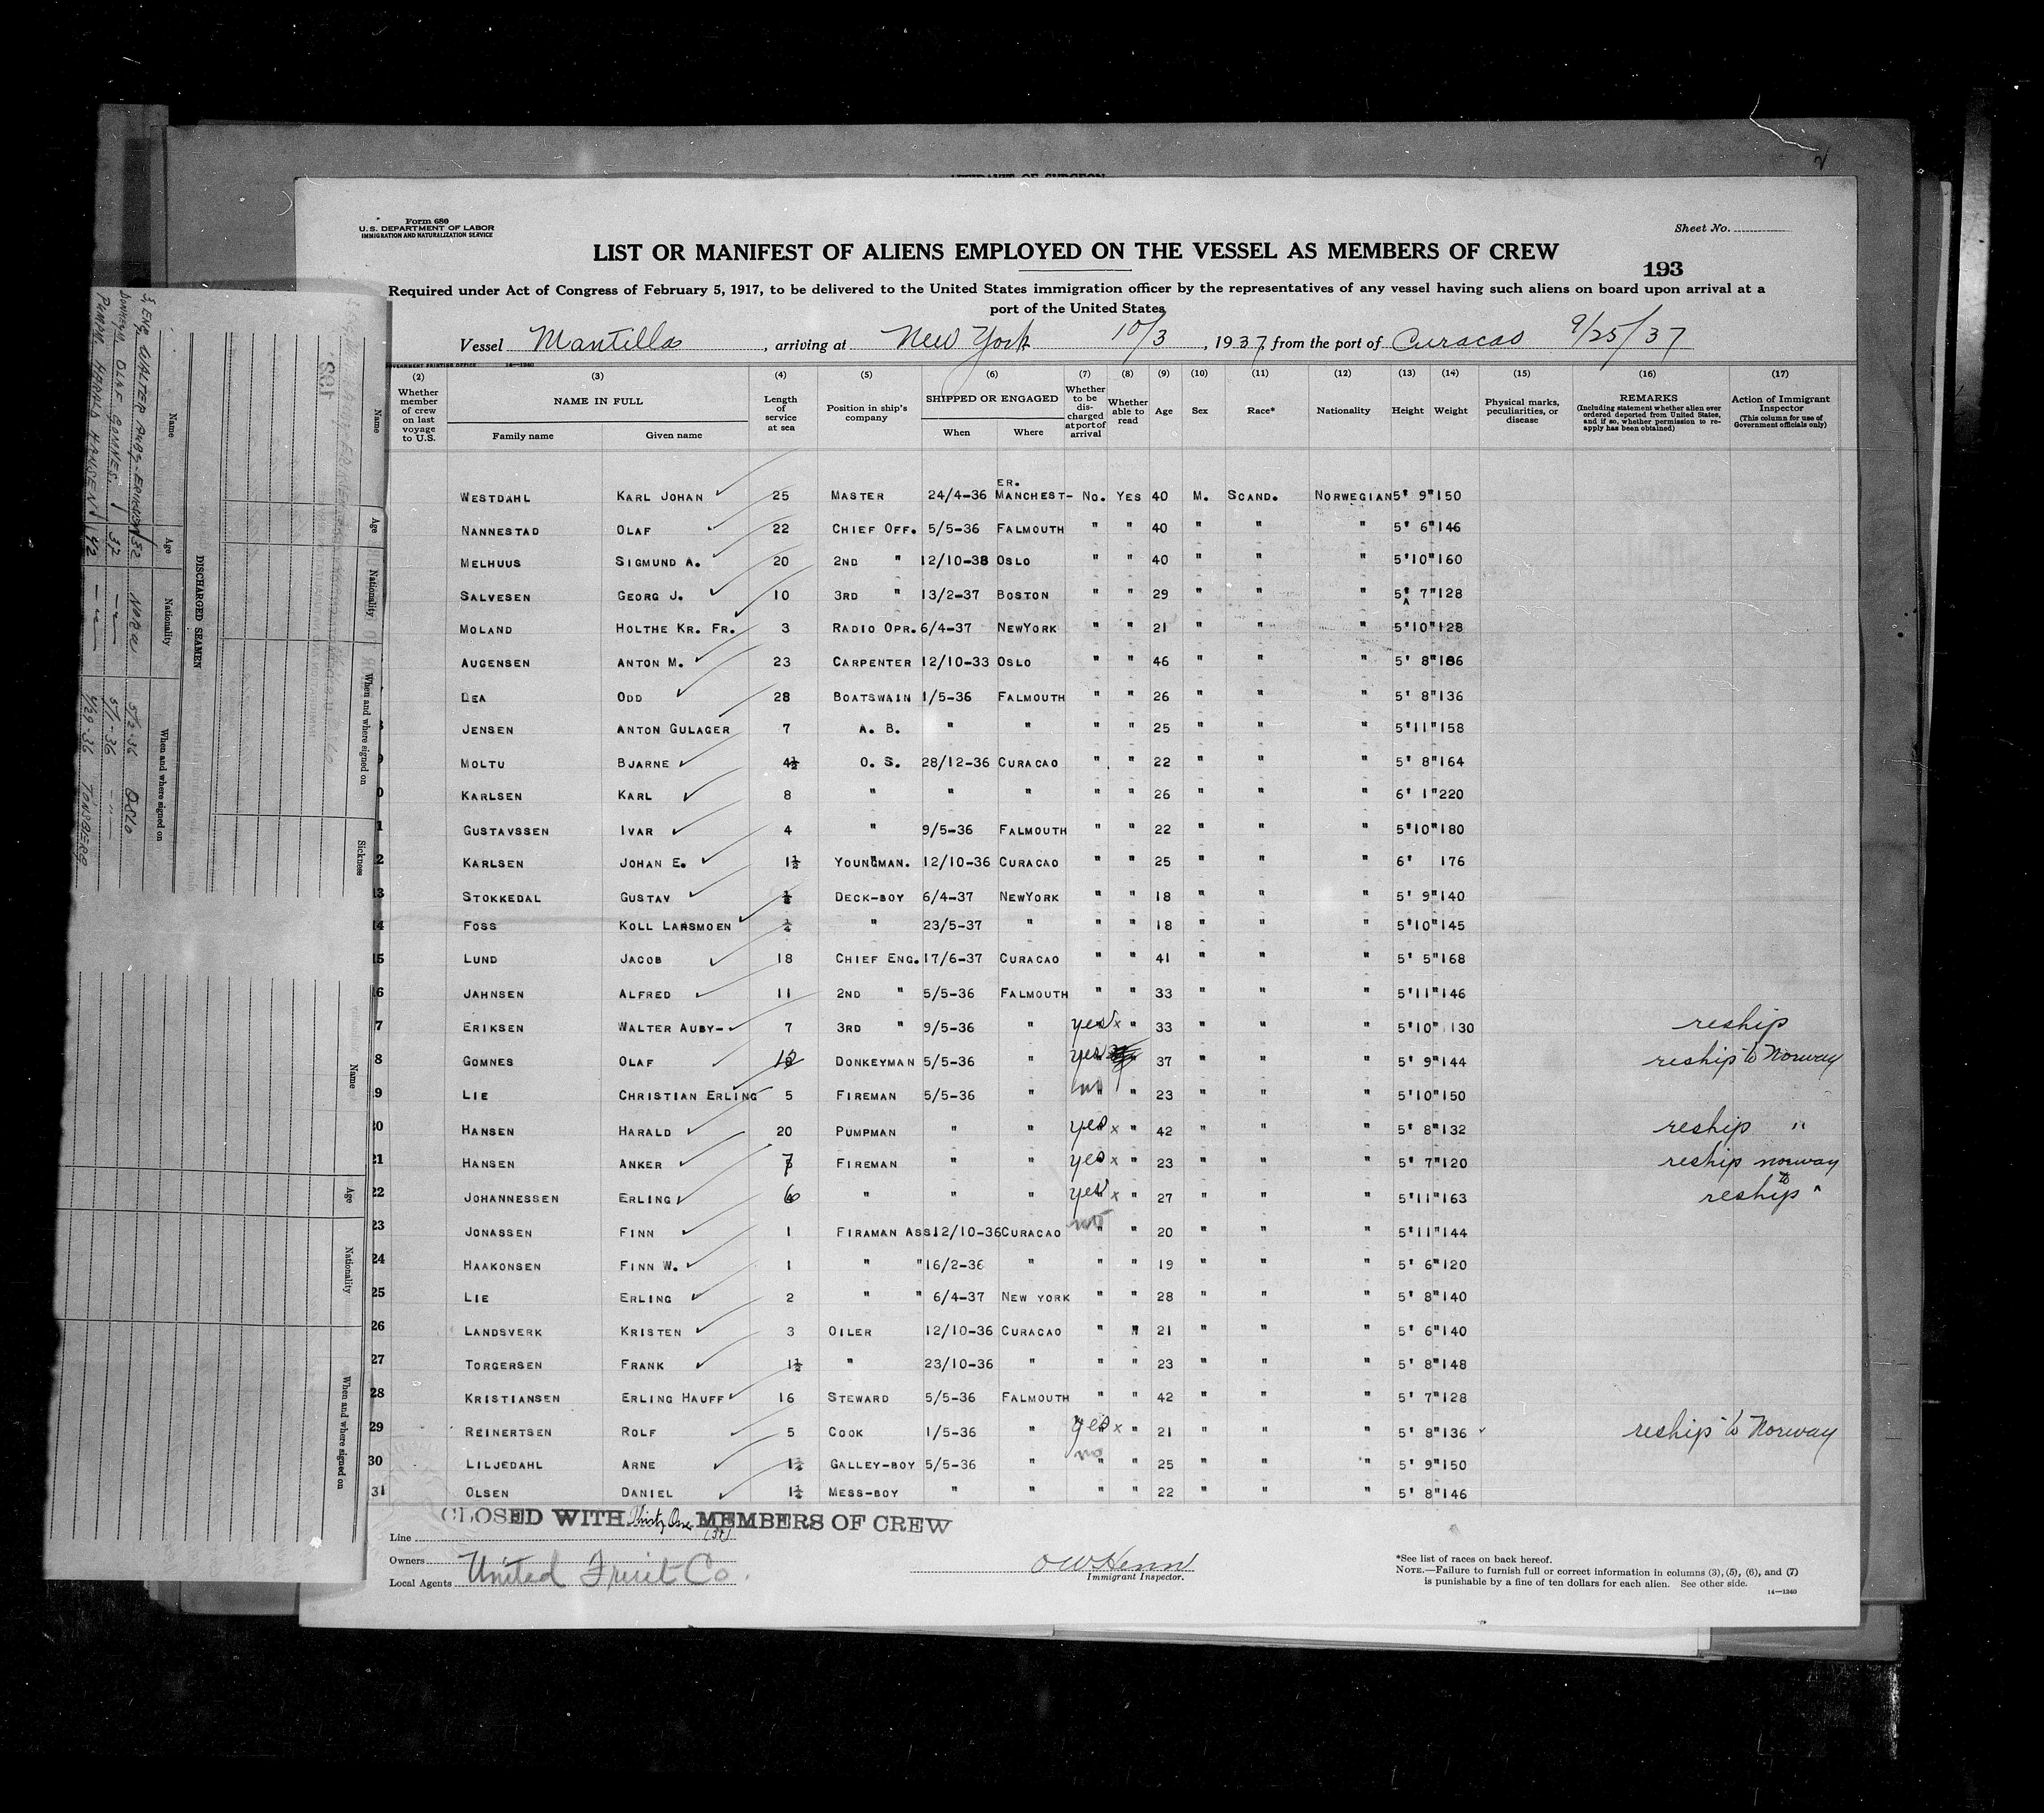 AFFIDAVIT OF SURGEON
Form 680
U. S. DEPARTMENT OF LABOR
IMMIGRATION AND NATURALIZATION SERVICE
Sheet No.
LIST OR MANIFEST OF ALIENS EMPLOYED ON THE VESSEL AS MEMBERS OF CREW
193
Required under Act of Congress of February 5, 1917, to be delivered to the United States immigration officer by the representatives of any vessel having such aliens on board upon arrival at a
port of the United States
Vessel Mantilla, arriving at New York 10/3, 1937 from the port of Curacao 9/25/37
(2) (3) (4) (5) (6) (7) (8) (9) (10) (11) (12) (13) (14) (15) (16) (17)
Whether member of crew on last voyage to U.S.
NAME IN FULL
Family name Given name
Length of service at sea
Position in ship's company
SHIPPED OR ENGAGED
When Where
Whether to be discharged at port of arrival
Whether able to read
Age Sex Race* Nationality Height Weight
Physical marks, peculiarities, or disease
REMARKS
(Including statement whether alien ever ordered deported from United States, and if so, whether permission to reapply has been obtained)
Action of Immigrant Inspector
(This column for use of Government officials only)
WESTDAHL KARL JOHAN 25 MASTER 24/4-36 MANCHEST-ER. NO. YES 40 M. SCAND. NORWEGIAN 5' 9" 150
NANNESTAD OLAF 22 CHIEF OFF. 5/5-36 FALMOUTH " " 40 " " " 5' 6" 146
MELHUUS SIGMUND A. 20 2ND " 12/10-38 OSLO " " 40 " " " 5'10" 160
SALVESEN GEORG J. 10 3RD " 13/2-37 BOSTON " " 29 " " " 5' 7" 128
MOLAND HOLTHE KR. FR. 3 RADIO OPR. 6/4-37 NEWYORK " " 21 " " " 5'10" 128
AUGENSEN ANTON M. 23 CARPENTER 12/10-33 OSLO " " 46 " " " 5' 8" 186
LEA ODD 28 BOATSWAIN 1/5-36 FALMOUTH " " 26 " " " 5' 8" 136
JENSEN ANTON GULAGER 7 A. B. " " " " 25 " " " 5'11" 158
9 MOLTU BJARNE 4½ O. S. 28/12-36 CURACAO " " 22 " " " 5' 8" 164
0 KARLSEN KARL 8 " " " " " 26 " " " 6' 1" 220
1 GUSTAVSSEN IVAR 4 " 9/5-36 FALMOUTH " " 22 " " " 5'10" 180
2 KARLSEN JOHAN E. 1½ YOUNGMAN. 12/10-36 CURACAO " " 25 " " " 6' 176
13 STOKKEDAL GUSTAV ½ DECK-BOY 6/4-37 NEWYORK " " 18 " " " 5' 9" 140
14 FOSS KOLL LARSMOEN ½ " 23/5-37 " " " 18 " " " 5'10" 145
15 LUND JACOB 18 CHIEF ENG. 17/6-37 CURACAO " " 41 " " " 5' 5" 168
16 JAHNSEN ALFRED 11 2ND " 5/5-36 FALMOUTH " " 33 " " " 5'11" 146
7 ERIKSEN WALTER AUBY- 7 3RD " 9/5-36 " yes x " 33 " " " 5'10" 130 reship
8 GOMNES OLAF 12 DONKEYMAN 5/5-36 " yes " 37 " " " 5' 9" 144 reship to Norway
9 LIE CHRISTIAN ERLING 5 FIREMAN 5/5-36 " no " 23 " " " 5'10" 150
20 HANSEN HARALD 20 PUMPMAN " " yes x " 42 " " " 5' 8" 132 reship "
21 HANSEN ANKER 7 FIREMAN " " yes x " 23 " " " 5' 7" 120 reship norway
22 JOHANNESSEN ERLING 6 " " " yes x " 27 " " " 5'11" 163 reship to "
23 JONASSEN FINN 1 FIRAMAN ASS. 12/10-36 CURACAO no " 20 " " " 5'11" 144
24 HAAKONSEN FINN W. 1 " " 16/2-36 " " " 19 " " " 5' 6" 120
25 LIE ERLING 2 " " 6/4-37 NEW YORK " " 28 " " " 5' 8" 140
26 LANDSVERK KRISTEN 3 OILER 12/10-36 CURACAO " " 21 " " " 5' 6" 140
27 TORGERSEN FRANK 1½ " 23/10-36 " " " 23 " " " 5' 8" 148
28 KRISTIANSEN ERLING HAUFF 16 STEWARD 5/5-36 FALMOUTH " " 42 " " " 5' 7" 128
29 REINERTSEN ROLF 5 COOK 1/5-36 " yes x " 21 " " " 5' 8" 136 reship to Norway
30 LILJEDAHL ARNE 1½ GALLEY-BOY 5/5-36 " no " 25 " " " 5' 9" 150
31 OLSEN DANIEL 1½ MESS-BOY " " " " 22 " " " 5' 8" 146
CLOSED WITH Thirty One (31) MEMBERS OF CREW
Line
Owners
Local Agents United Fruit Co.
O W Henn
Immigrant Inspector.
*See list of races on back hereof.
NOTE.—Failure to furnish full or correct information in columns (3), (5), (6), and (7)
is punishable by a fine of ten dollars for each alien. See other side.
14—1340
GOVERNMENT PRINTING OFFICE 14—1340
DISCHARGED SEAMEN
Name Age Nationality When and where signed on
3 ENG. WALTER AUBY-ERIKSEN 32 NORW 5/2-36 OSLO
DONKEYM. OLAF GOMNES 37 —"— 5/1-36 —"—
PUMPM. HARALD HANSEN 42 —"— 1/29-36 TÖNSBERG
Name Age Nationality When and where signed on Sickness
193
Name Age Nationality When and where signed on